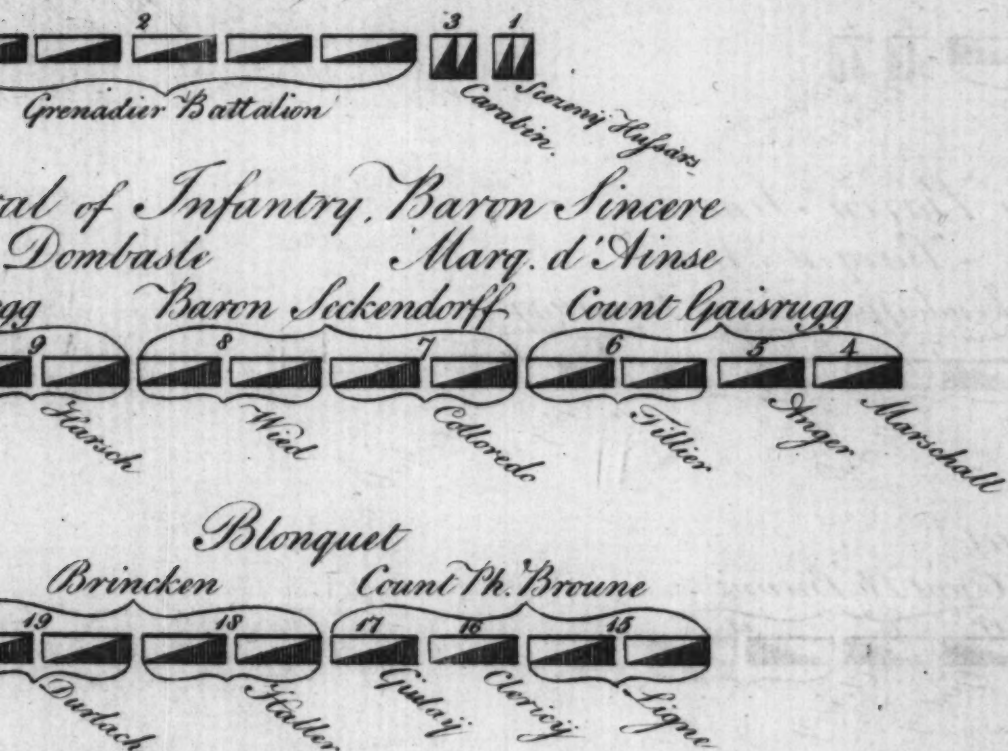 2 3 1
Grenadier Battalion
Carabin.
Sceremÿ Hussars
ral of Infantry, Baron Sincere
Dombasle Marq. d'Ainse
gg Baron Seckendorff Count Gaisrugg
9 8 7 6 5 4
Harsch Wied Colloredo Tillier Anger Marschall
Blonquet
Brincken Count Ph. Broune
19 18 17 16 15
Durlach Haller Giulaÿ Clericÿ Ligne